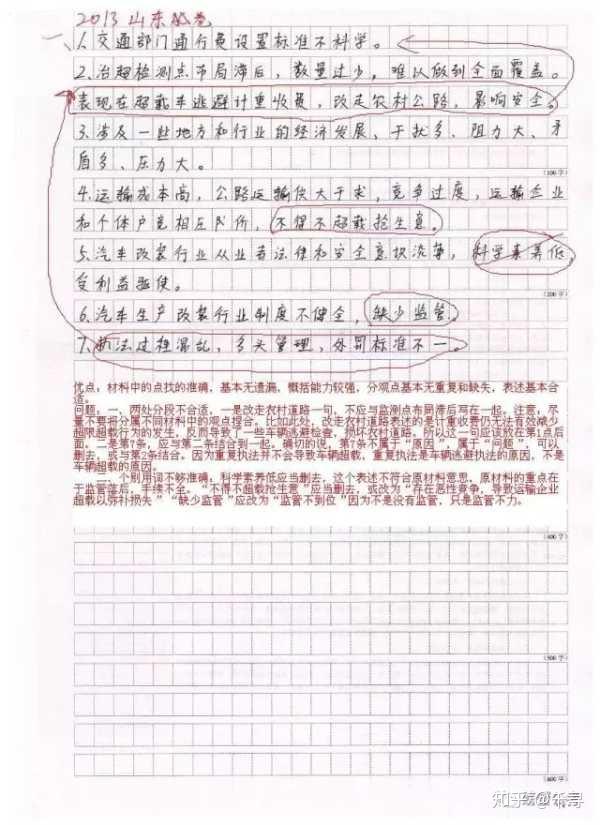 2013 山东试卷
一、1.交通部门通行费设置标准不科学。
2.治超检测点布局滞后，数量过少，难以做到全面覆盖。
表现在超载车逃避计重收费，改走农村公路，影响安全。
3.涉及一些地方和行业的经济发展，干扰多、阻力大、矛
盾多、压力大。
(100字)
4.运输成本高，公路运输供大于求，竞争过度，运输企业
和个体户竞相压价，不得不超载抢生意。
5.汽车改装行业从业者法律和安全意识淡薄，科学素养低，
受利益驱使。
(200字)
6.汽车生产改装行业制度不健全，缺少监管。
7.执法过程混乱，多头管理，处罚标准不一。
优点：材料中的点找的准确，基本无遗漏，概括能力较强，分观点基本无重复和缺失，表述基本合
适。
问题，一、两处分段不合适，一是改走农村道路一句，不应与监测点布局滞后写在一起。注意，尽
量不要将分属不同材料中的观点捏合。比如此处，改走农村道路表述的是计重收费仍无法有效减少
超限超载行为的发生，反而导致了一些车辆逃避检查，损坏农村道路。所以这一句应该放在第1点后
面。二是第7条，应与第二条结合到一起。确切的说，第7条不属于“原因”，属于“问题”，可以
删去，或与第2条结合。因为重复执法并不会导致车辆超载，重复执法是车辆逃避执法的原因，不是
车辆超载的原因。
二、个别用词不够准确：科学素养低应当删去，这个表述不符合原材料意思，原材料的重点在
于监管落后，手续不全。“不得不超载抢生意”应当删去，或改为“存在恶性竞争，导致运输企业
超载以弥补损失”“缺少监管”应改为“监管不到位”因为不是没有监管，只是监管不力。
(400字)
(500字)
(600字)
知乎 @乐寻